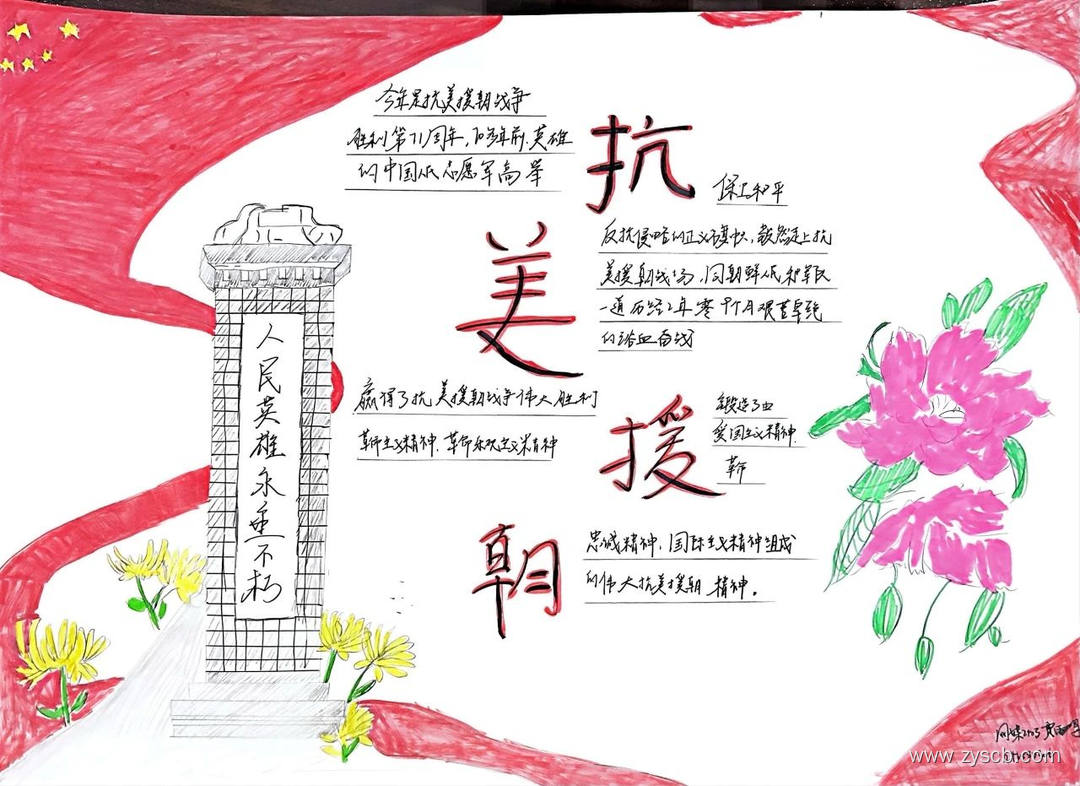 今年是抗美援朝战争
胜利第71周年,70多年前,英雄
的中国人民志愿军高举
抗
保卫和平
美
反抗侵略的正义旗帜,毅然走上抗
美援朝战场,同朝鲜人民和军队
一道历经2年零9个月艰苦卓绝
的浴血奋战
赢得了抗美援朝战争伟大胜利
锻造了由
爱国主义精神.
革命
援
革命主义精神.革命乐观主义精神
忠诚精神,国际主义精神组成
的伟大抗美援朝精神.
朝
人民英雄永垂不朽
www.zyscb.com